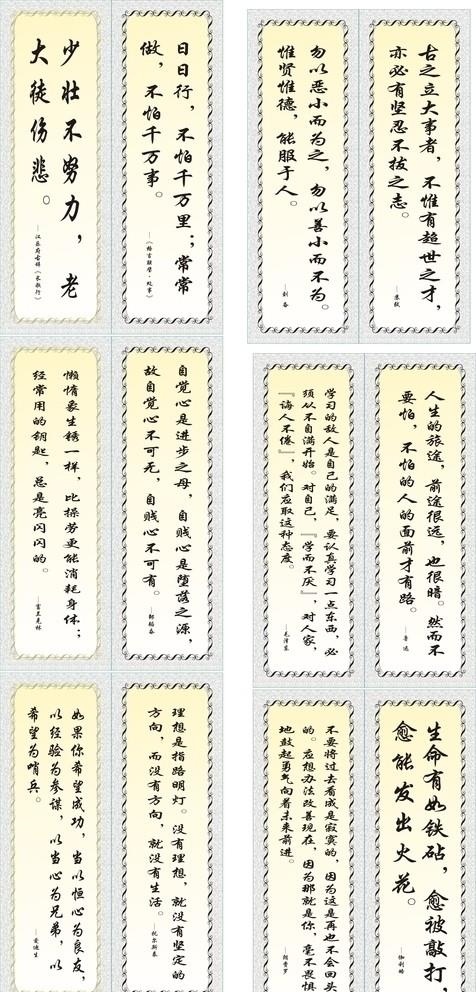 少壮不努力，老
大徒伤悲。
—汉乐府古辞《长歌行》
日日行，不怕千万里；常常
做，不怕千万事。
—《格言联璧·处事》
勿以恶小而为之，勿以善小而不为。
惟贤惟德，能服于人。
—刘备
古之立大事者，不惟有超世之才，
亦必有坚忍不拔之志。
—苏轼
懒惰象生锈一样，比操劳更能消耗身体；
经常用的钥匙，总是亮闪闪的。
—富兰克林
自觉心是进步之母，自贱心是堕落之源，
故自觉心不可无，自贱心不可有。
—邹韬奋
学习的敌人是自己的满足，要认真学习一点东西，必
须从不自满开始。对自己，『学而不厌』，对人家，
『诲人不倦』，我们应取这种态度。
—毛泽东
人生的旅途，前途很远，也很暗。然而不
要怕，不怕的人的面前才有路。
—鲁迅
如果你希望成功，当以恒心为良友，
以经验为参谋，以当心为兄弟，以
希望为哨兵。
—爱迪生
理想是指路明灯。没有理想，就没有坚定的
方向，而没有方向，就没有生活。
—托尔斯泰
不要将过去看成是寂寞的，因为这是再也不会回头
的。应想办法改善现在，因为那就是你，毫不畏惧
地鼓起勇气向着未来前进。
—朗费罗
生命有如铁砧，愈被敲打，
愈能发出火花。
—伽利略